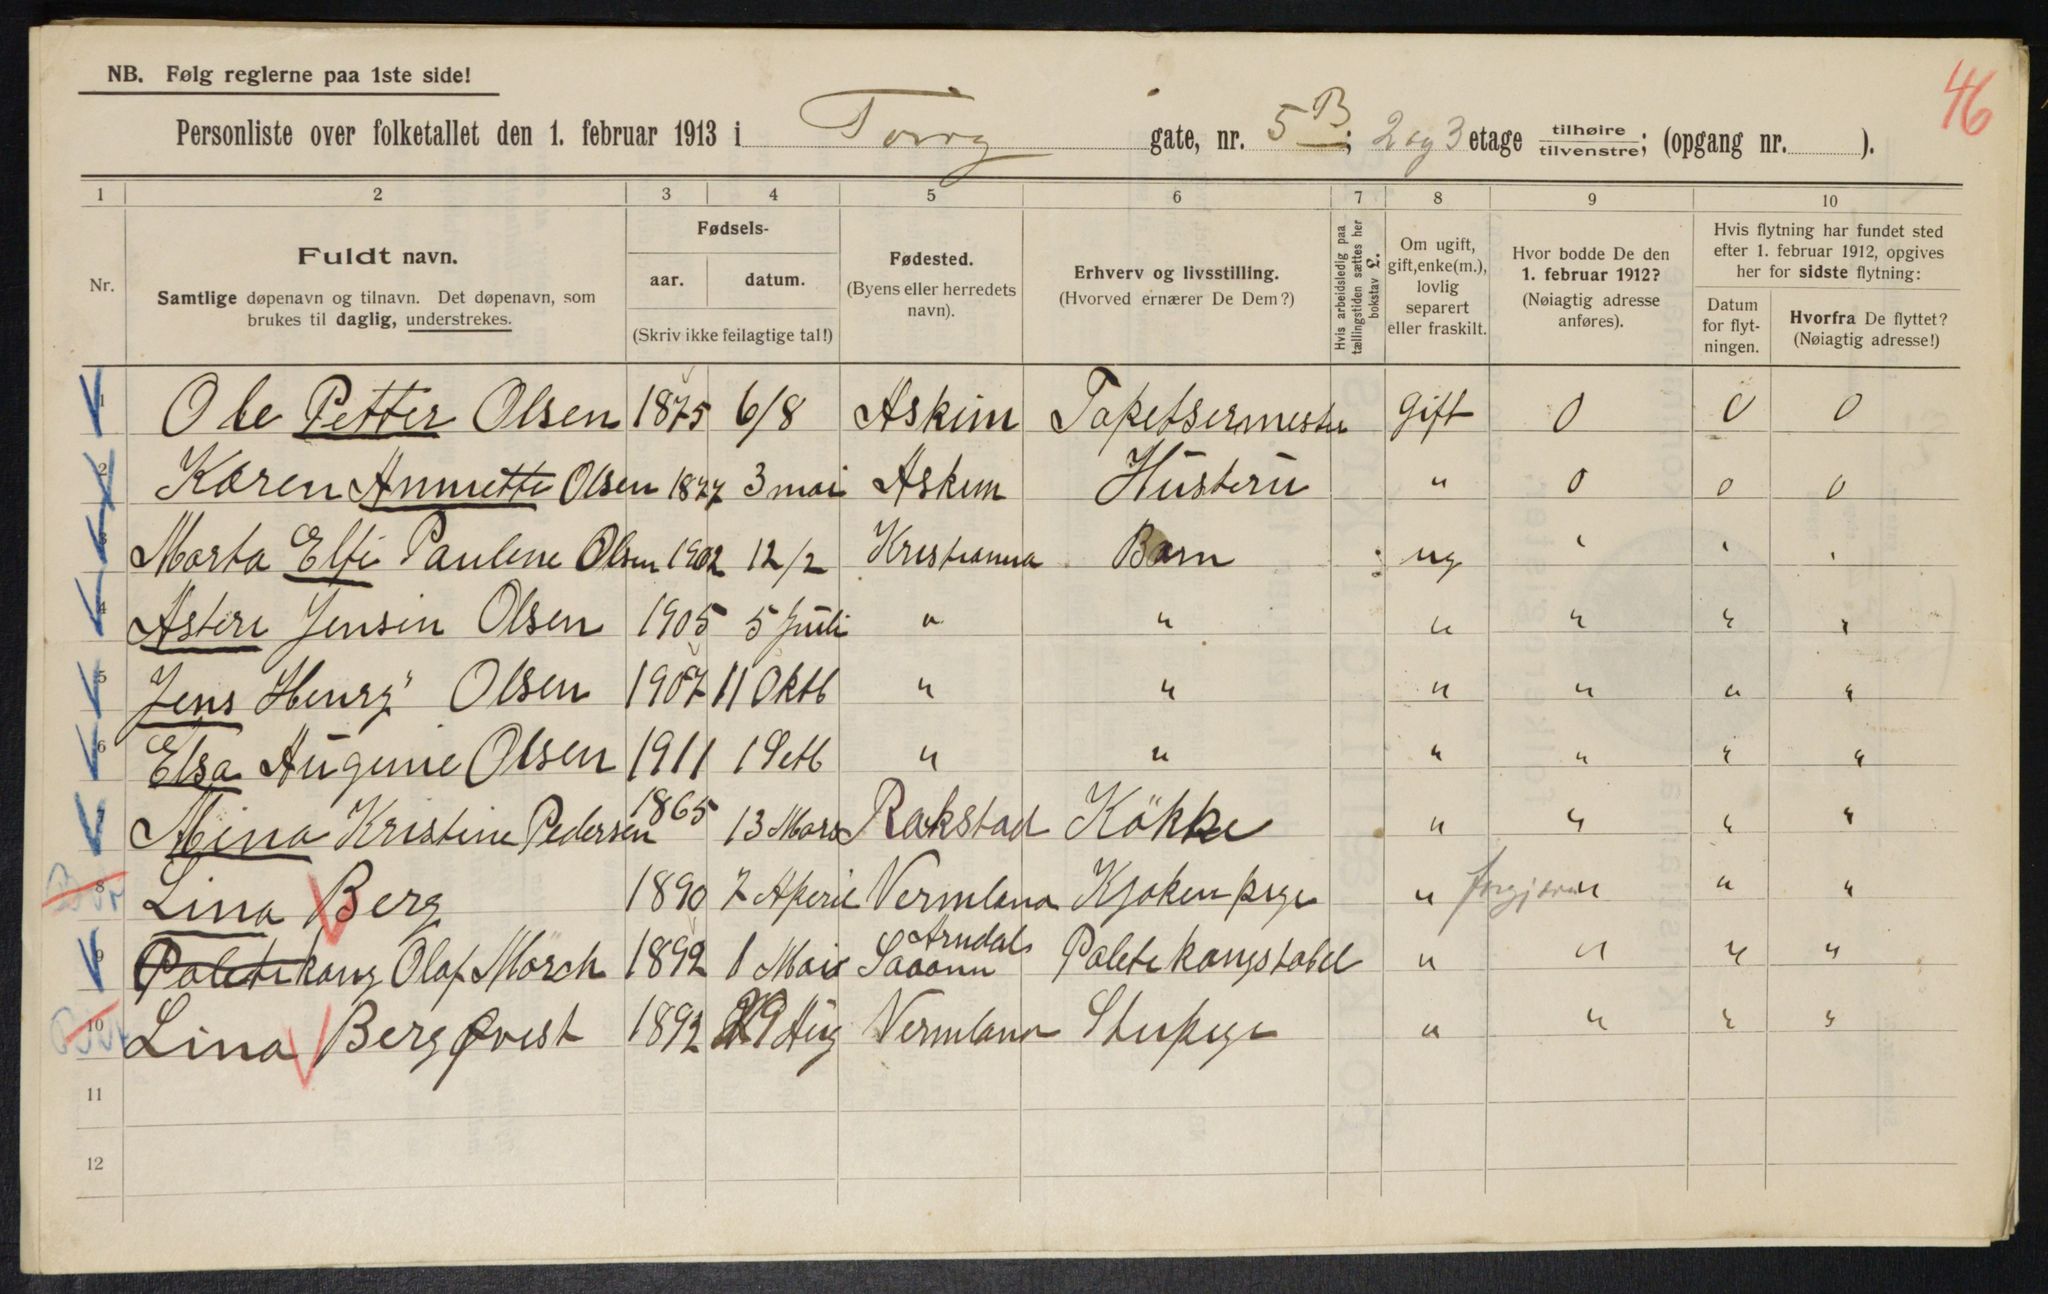 46
NB. Følg reglerne paa 1ste side!
Personliste over folketallet den 1. februar 1913 i Torvg gate, nr. 5 B; 2 og 3 etage tilhøire tilvenstre; (opgang nr. ).
1 2 3 4 5 6 7 8 9 10
Nr.
Fuldt navn.
Samtlige døpenavn og tilnavn. Det døpenavn, som brukes til daglig, understrekes.
Fødsels-
aar. datum.
(Skriv ikke feilagtige tal!)
Fødested.
(Byens eller herredets navn).
Erhverv og livsstilling.
(Hvorved ernærer De Dem?)
Hvis arbeidsledig paa tællingstiden sættes her bokstav L.
Om ugift, gift, enke(m.), lovlig separert eller fraskilt.
Hvor bodde De den 1. februar 1912?
(Nøiagtig adresse anføres).
Hvis flytning har fundet sted efter 1. februar 1912, opgives her for sidste flytning:
Datum for flyt-ningen.
Hvorfra De flyttet?
(Nøiagtig adresse!)
1 Ole Petter Olsen 1875 6/8 Askim Tapetsermester gift 0 0 0
2 Karen Annette Olsen 1877 3 mai Askim Hüsterü " 0 0 0
3 Marta Elfi Paulene Olsen 1902 12/2 Kristiania Barn ug " " "
4 Asteri Jensin Olsen 1905 5 Juli " " " " " "
5 Jens Henry Olsen 1907 11 Oktb " " " " " "
6 Elsa Augenie Olsen 1911 1 Setb " " " " " "
Mina Kristine Pedersen 1865 13 Mars Rakstad Kökke " " " "
8 Lina Berg 1890 7 Aperil Vermland Kjøkenpige " " " "
9 Poletikong Olaf Mörch 1892 1 Mai Arndal Poletekongstabel " " " "
10 Lina BergQvist 1892 29 Aug Vermland Stupige " " " "
11
12